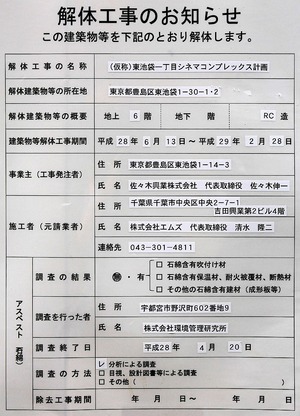 解体工事のお知らせ
この建築物等を下記のとおり解体します。
解体工事の名称 (仮称)東池袋一丁目シネマコンプレックス計画
解体建築物等の所在地 東京都豊島区東池袋1-30-1・2
解体建築物等の概要 地上 6 階 地下 階 RC 造
建築物等解体工事期間 平成 28 年 6 月 13 日~ 平成 29 年 2 月 28 日
事業主(工事発注者) 住所 東京都豊島区東池袋1-14-3
氏名 佐々木興業株式会社 代表取締役 佐々木伸一
施工者(元請業者) 住所 千葉県千葉市中央区中央2-7-1
吉田興業第2ビル4階
氏名 株式会社エムズ 代表取締役 清水 隆二
連絡先 043-301-4811
アスベスト(石綿)
調査の結果 無・有 □石綿含有吹付け材
□石綿含有保温材、耐火被覆材、断熱材
□その他の石綿含有建材(成形板等)
調査を行った者 住所 宇都宮市野沢町602番地9
氏名 株式会社環境管理研究所
調査終了日 平成28年 4月 20日
調査の方法 ☑分析による調査
□目視、設計図書等による調査
□その他( )
除去工事期間 年 月 日~ 年 月 日